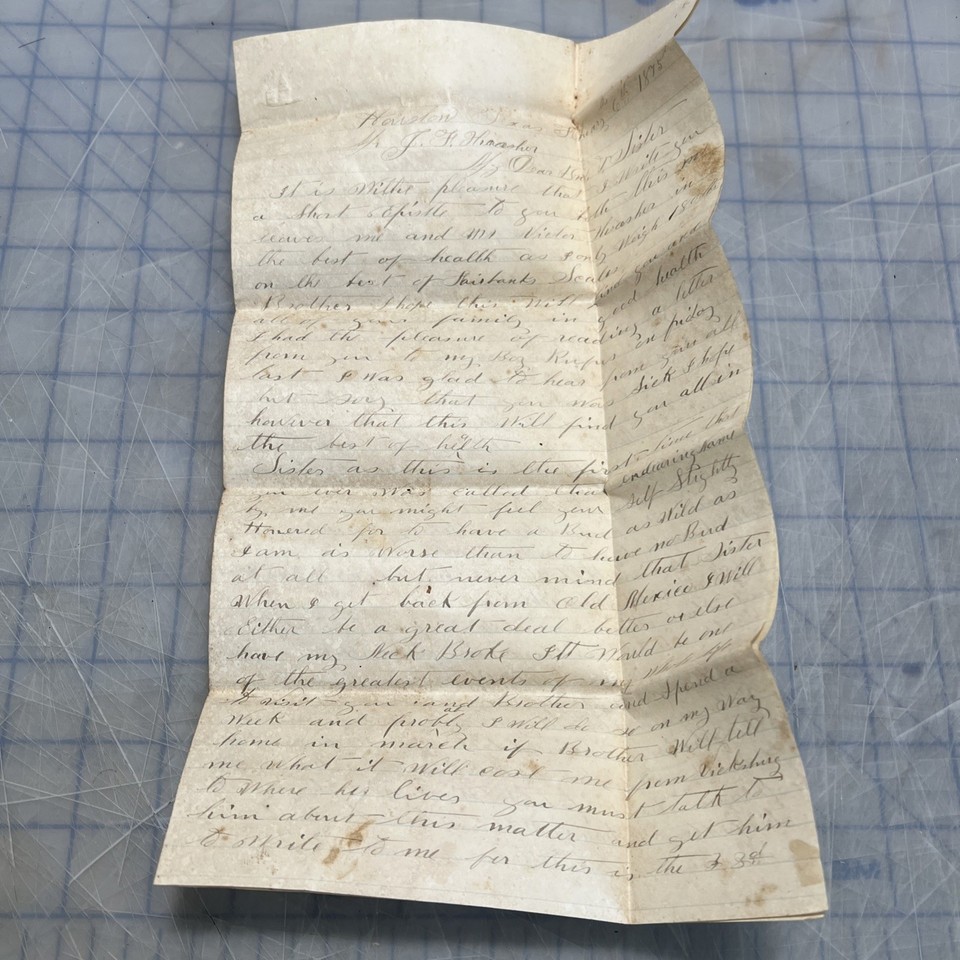 Houston Texas 6th 1895
Mr J. F. Thrasher
My Dear Bro & Sister
It is Withe pleasure that I write you
a Short epistle to you this
leaves me and Mr Victor Thrasher in
the best of health as I only Weigh
on the best of Fairbanks Scales
Brother I hope this Will find you and
all of your family in good health
I had the pleasure of reading a letter
from you to my Boy Rufus on friday
last I Was glad to hear from you all
but Sory that you Was Sick I hope
however that this Will find you all in
the best of helth
Sister as this is the first time that
you ever Was called that endearing name
by me you might feel your self Slightly
Honored for to have a Bud as Wild as
I am is Worse than to have no Bud
at all but never mind that Sister
When I get back from Old Mexico I Will
Either be a great deal better or else
have my Neck Broke It Would be one
of the greatest events of my
to visit you and Brother and Spend a
Week and probly I Will do so on my Way
home in march if Brother Will tell
me What it Will cost me from Vicksburg
to Where he lives you must talk to
him about this matter and get him
to Write to me for this is the 3rd